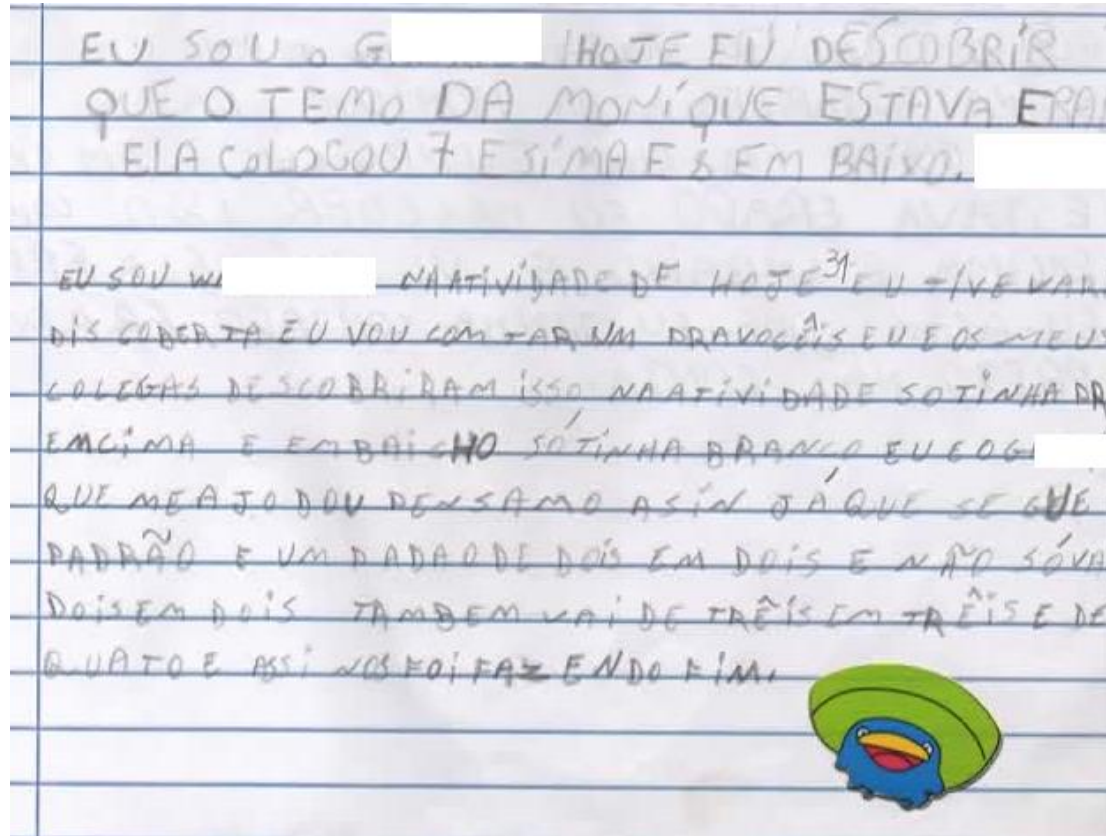 EU SOU O G HOJE EU DESCOBRIR
QUE O TEMO DA MONIQUE ESTAVA ERA
ELA COLOCOU 7 E SIMA E 8 EM BAIXO.
EU SOU WA NA ATIVIDADE DE HOJE 31 EU TIVE VAR
DISCOBERTA EU VOU COM TAR UM PRA VOCÊIS EU E OS MEUS
COLEGAS DESCOBRIRAM ISSO NA ATIVIDADE SO TINHA PR
EMCIMA E EMBAICHO SÓ TINHA BRANCO EU E O G
QUE ME AJODOU PENSAMO ASIN JÁ QUE SE GUE
PADRÃO E UM PADAO DE DOIS EM DOIS E NÃO SÓ VA
DOIS EM DOIS TAMBEM VAI DE TRÊIS EM TRÊIS E DE
QUATO E ASSI NOS FOI FAZENDO FIM.